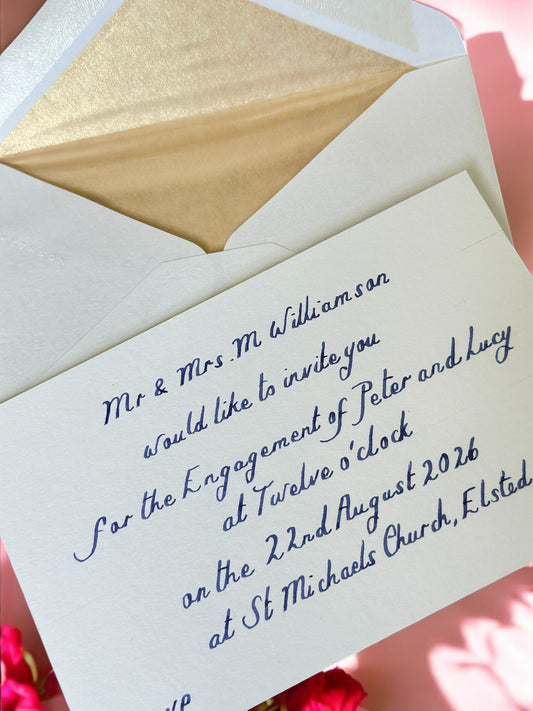 Mr & Mrs. M Williamson
would like to invite you
for the Engagement of Peter and Lucy
at Twelve o'clock
on the 22nd August 2026
at St Michaels Church, Elsted
VP